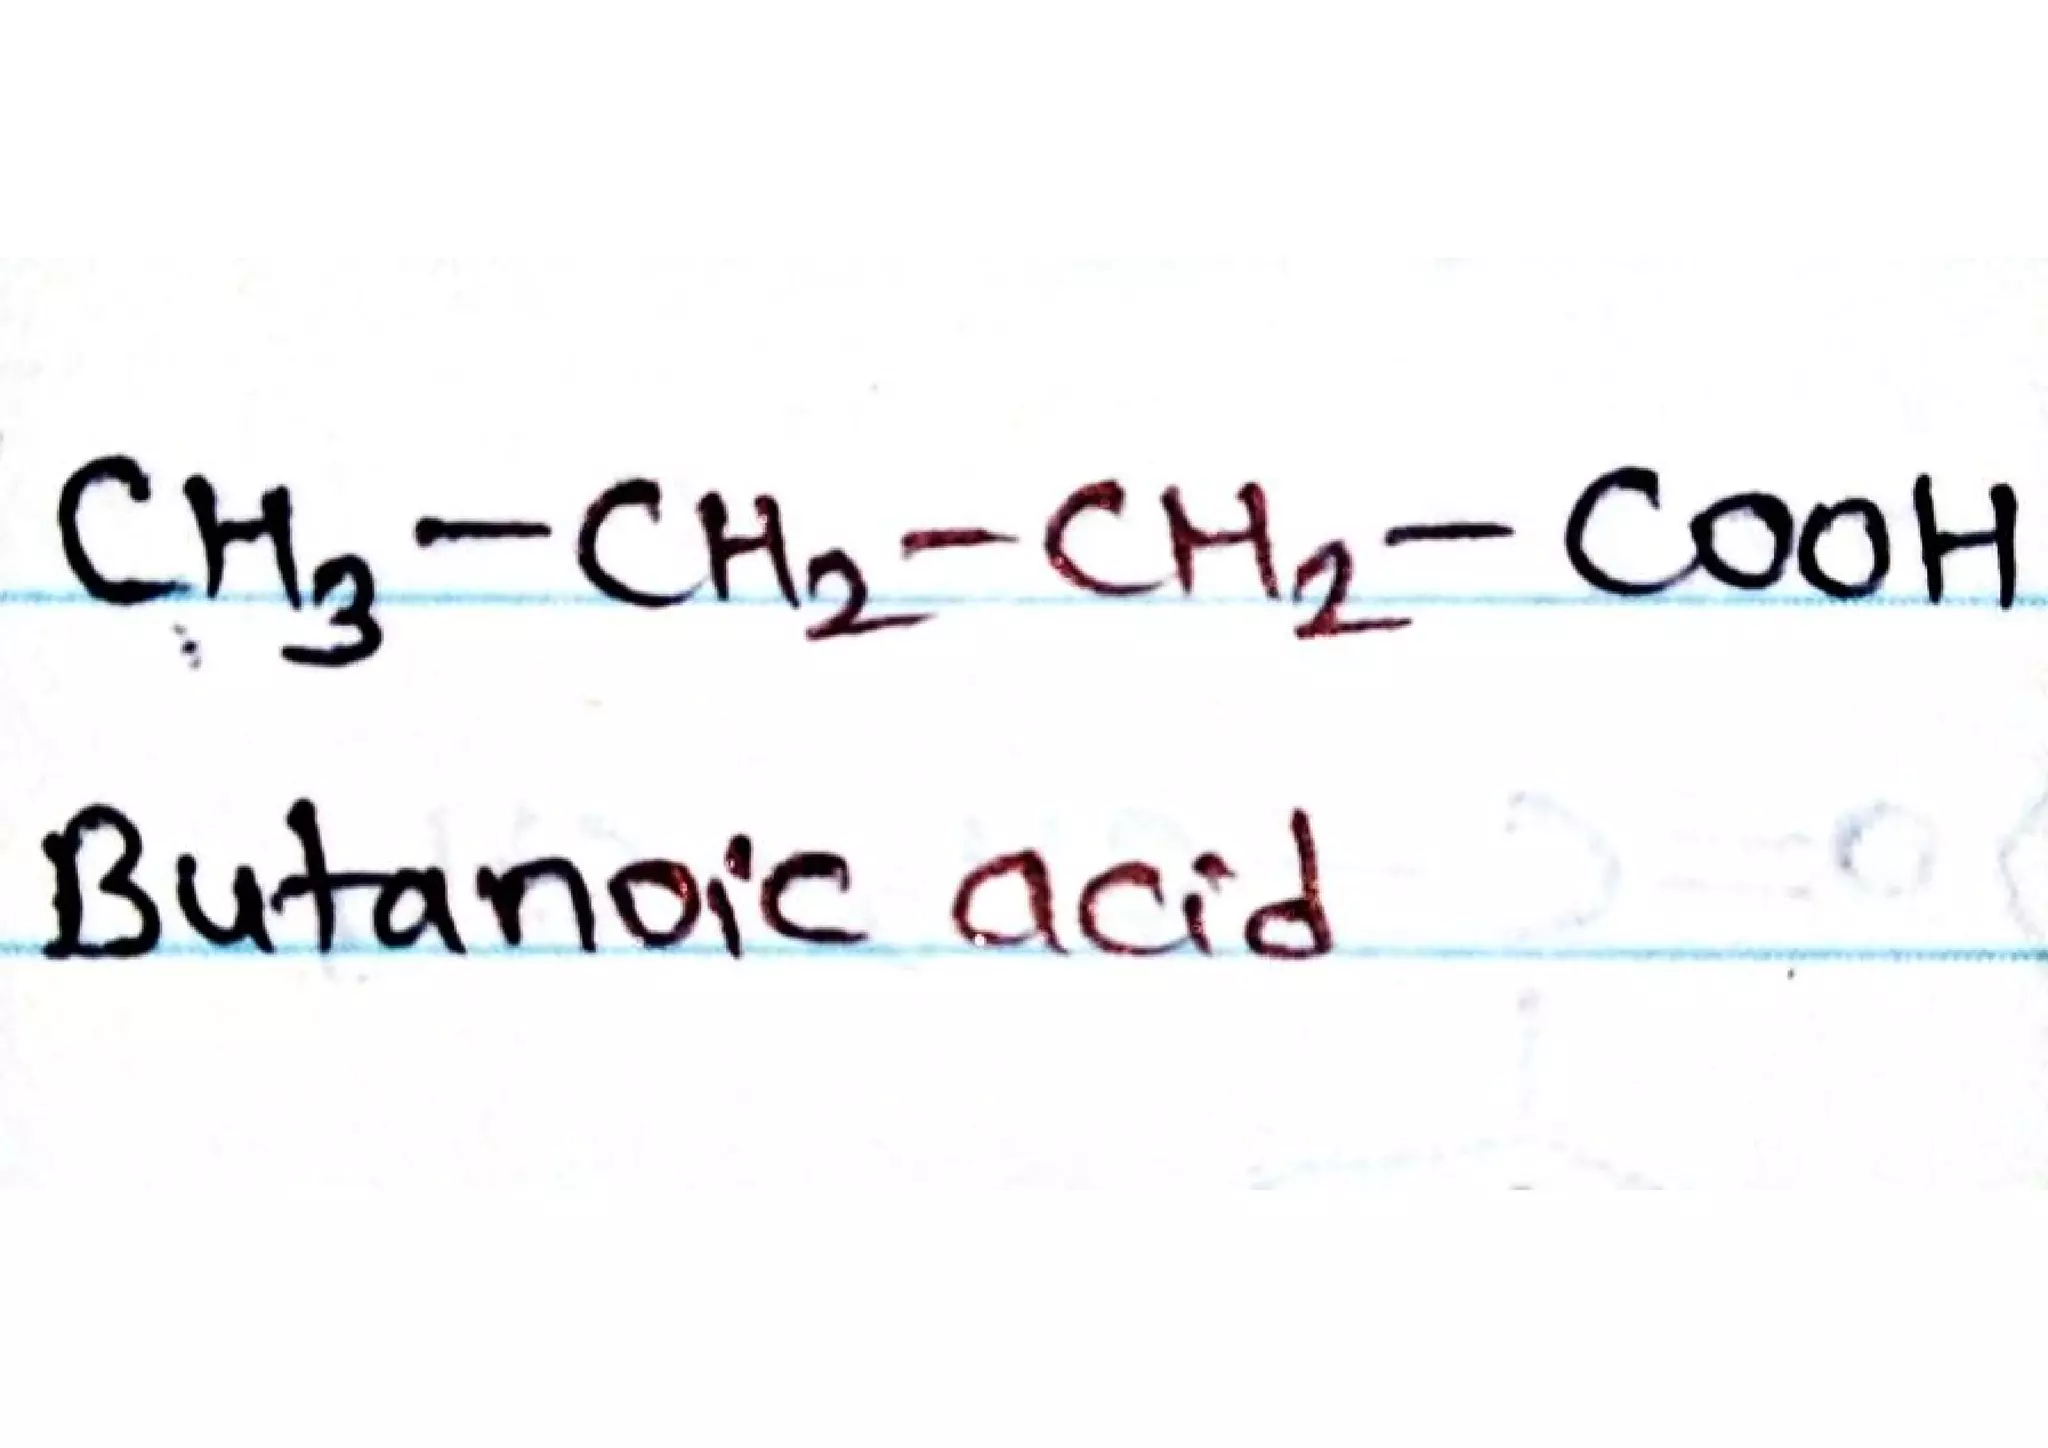 CH₃-CH₂-CH₂-COOH
Butanoic acid